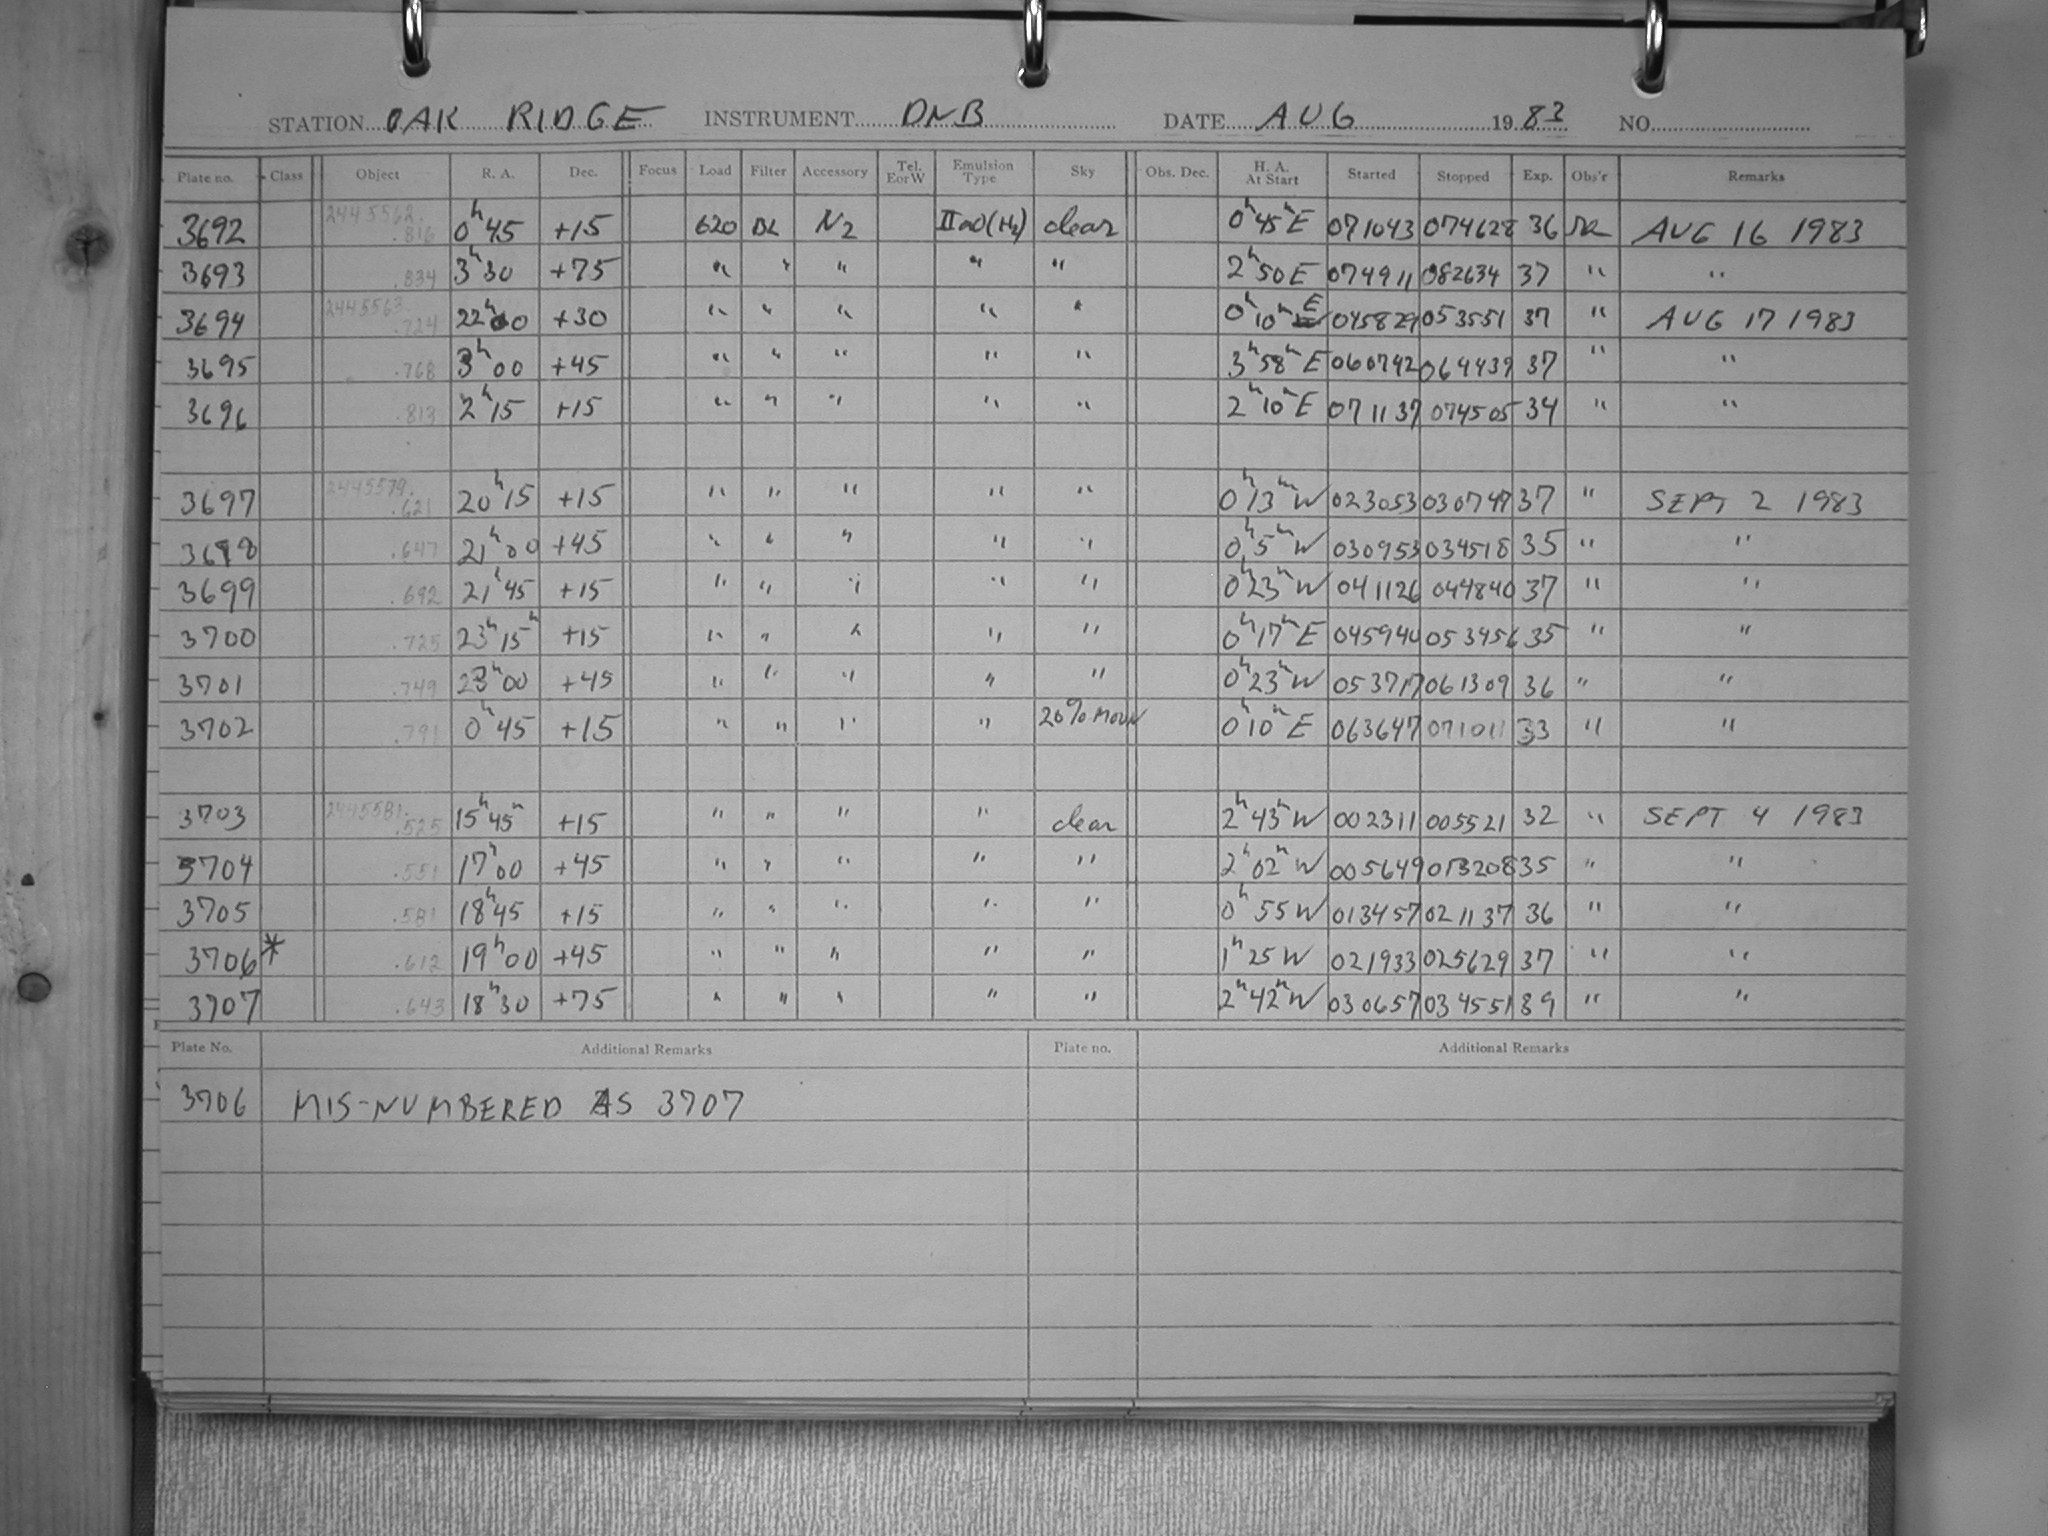 STATION OAK RIDGE INSTRUMENT DNB DATE AUG 1983 NO.
Plate no. Class Object R. A. Dec. Focus Load Filter Accessory Tel. E or W Emulsion Type Sky Obs. Dec. H. A. At Start Started Stopped Exp. Obs'r Remarks
3692 2445562.816 0h45 +15 620 BL N2 IIaO(H2) clear 0h45mE 071043 074628 36 AUG 16 1983
3693 .834 3h30 +75 " " " " " 2h50E 074911 082634 37 " "
3694 2445563.724 22h00 +30 " " " " " 0h10mE 045829 053551 37 " AUG 17 1983
3695 .768 3h00 +45 " " " " " 3h58mE 060742 064439 37 " "
3696 .813 2h15 +15 " " " " " 2h10mE 071137 074505 34 " "
3697 2445579.621 20h15 +15 " " " " " 0h13mW 023053 030747 37 " SEPT 2 1983
3698 .647 21h00 +45 " " " " " 0h5mW 030953 034518 35 " "
3699 .692 21h45 +15 " " " " " 0h23mW 041126 044840 37 " "
3700 .725 23h15m +15 " " " " " 0h17mE 045940 053456 35 " "
3701 .749 23h00 +45 " " " " " 0h23mW 053717 061309 36 " "
3702 .791 0h45 +15 " " " " 20% MOON 0h10mE 063647 071011 33 " "
3703 2445581.525 15h45m +15 " " " " clear 2h43mW 002311 005521 32 " SEPT 4 1983
3704 .551 17h00 +45 " " " " " 2h02mW 005649 013208 35 " "
3705 .581 18h45 +15 " " " " " 0h55W 013457 021137 36 " "
3706* .612 19h00 +45 " " " " " 1h25W 021933 025629 37 " "
3707 .643 18h30 +75 " " " " " 2h42mW 030657 034551 39 " "
Plate No. Additional Remarks Plate no. Additional Remarks
3706 MIS-NUMBERED AS 3707